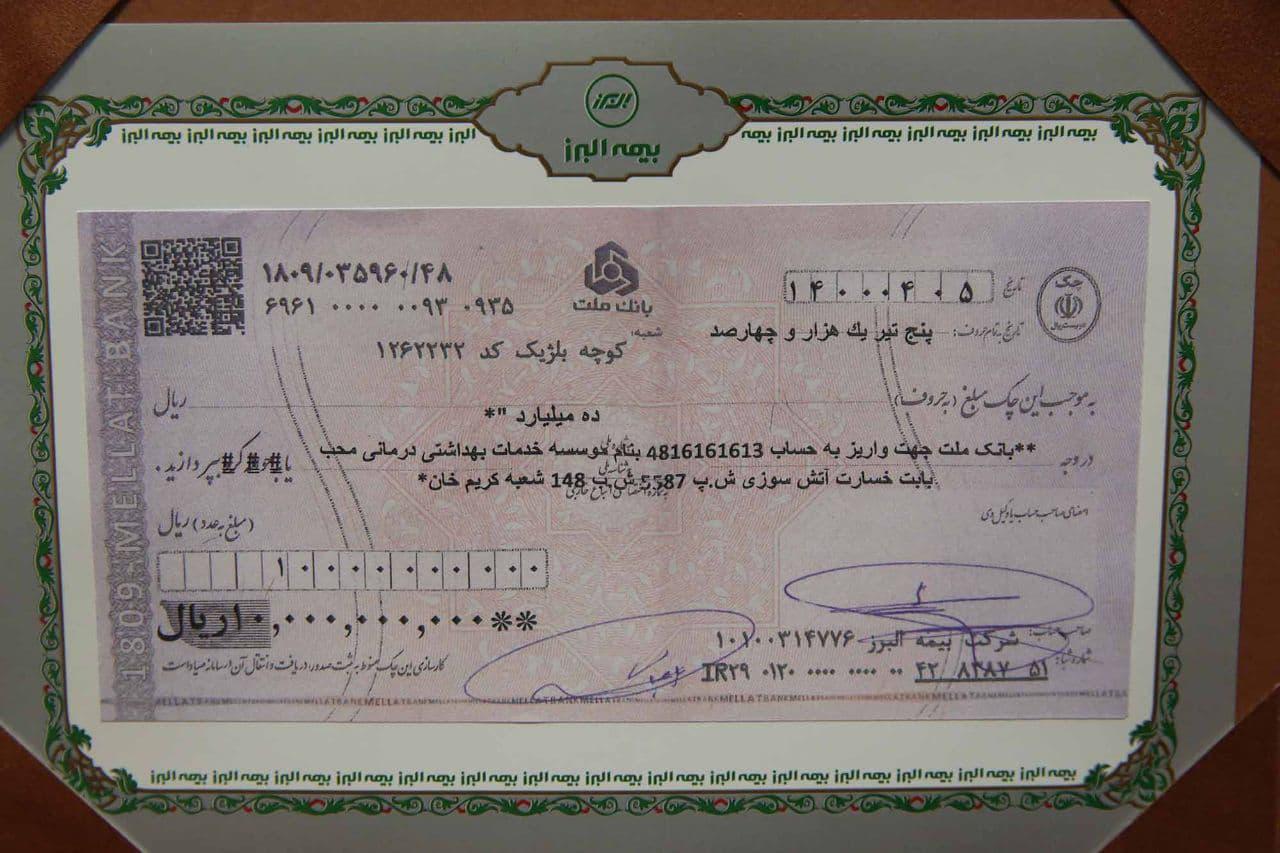 البرز
بیمه البرز
بیمه البرز بیمه البرز بیمه البرز بیمه البرز بیمه البرز البرز
بیمه البرز بیمه البرز بیمه البرز بیمه البرز بیمه البرز بیمه
1809 MELLAT BANK
چک
در بست ریال
تاریخ ۱۴۰۰۰۴۰۵
بانک ملت
۱۸۰۹/۰۳۵۹۶۰/۴۸
۶۹۶۱ ۰۰۰۰ ۰۰۹۳ ۰۹۳۵
تاریخ به تمام حروف: پنج تیر یك هزار و چهارصد
شعبه:
کوچه بلژیک کد ۱۲۶۲۲۳۲
به موجب این چک مبلغ (به حروف) ریال
ده میلیارد "*
در وجه **بانک ملت جهت واریز به حساب 4816161613 بنام موسسه خدمات بهداشتی درمانی محب
بپردازید.
بابت خسارت آتش سوزی ش.پ 5587 ش.ب 148 شعبه کریم خان*
امضای صاحب حساب یا وکیل وی
(مبلغ به عدد) ریال
۱۰۰۰۰۰۰۰۰۰۰
۱۰,۰۰۰,۰۰۰,۰۰۰** ریال
صاحب حساب: شرکت بیمه البرز ۱۰۱۰۰۳۱۴۷۷۶
شماره شبا: IR۲۹ ۰۱۲۰ ۰۰۰۰ ۰۰۰۰ ۰۰ ۴۲ ۸۲۸۷ ۵۱
کارسازی این چک منوط به ثبت صدور، دریافت و انتقال آن در سامانه صیاد است
MELLATBANKMELLATBANKMELLATBANK
بیمه البرز بیمه البرز بیمه البرز بیمه البرز بیمه البرز بیمه البرز بیمه البرز بیمه البرز بیمه البرز بیمه البرز بیمه البرز بیمه البرز بیمه البرز بیمه البرز بیمه البرز